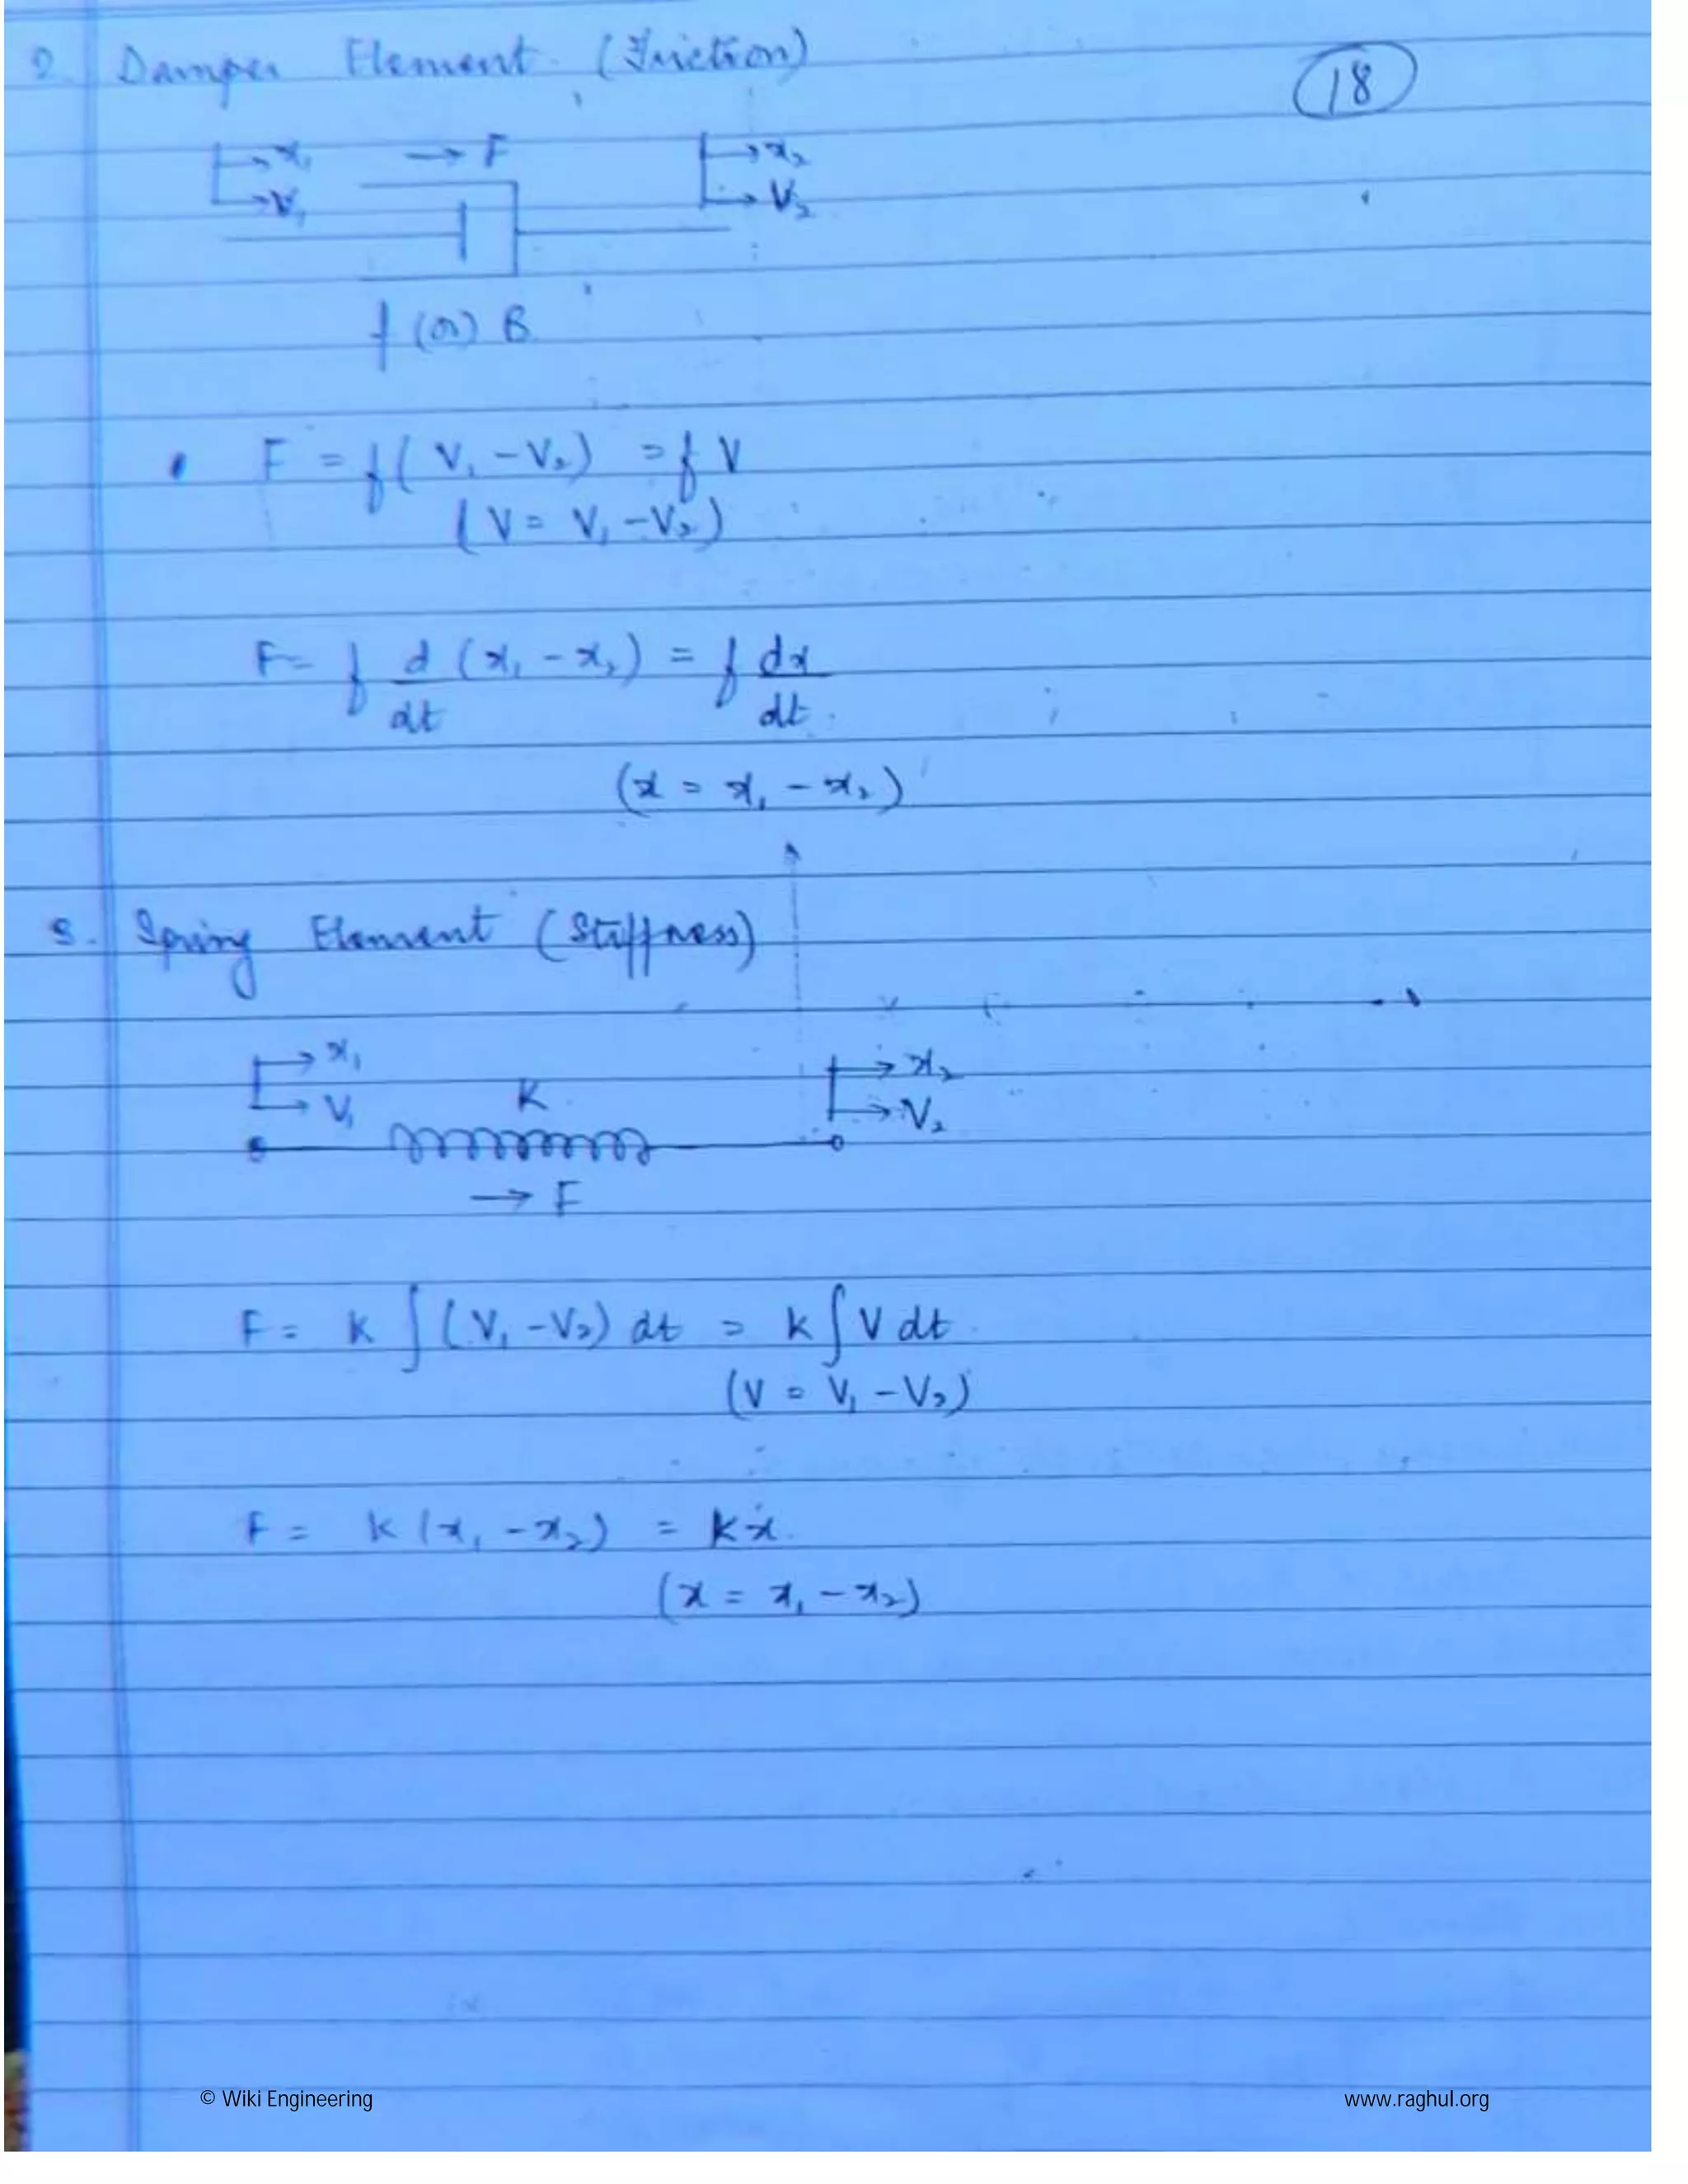 2. Damper Element (Friction)
18
x₁ → F x₂
V₁ V₂
f (or) B
F = f( V₁ - V₂) = f V
( V = V₁ - V₂ )
F = f d/dt (x₁ - x₂) = f dx/dt
(x = x₁ - x₂)
3. Spring Element (Stiffness)
x₁ x₂
V₁ K V₂
→ F
F = K ∫ (V₁ - V₂) dt = K ∫ V dt
(V = V₁ - V₂)
F = K (x₁ - x₂) = Kx
(x = x₁ - x₂)
© Wiki Engineering www.raghul.org